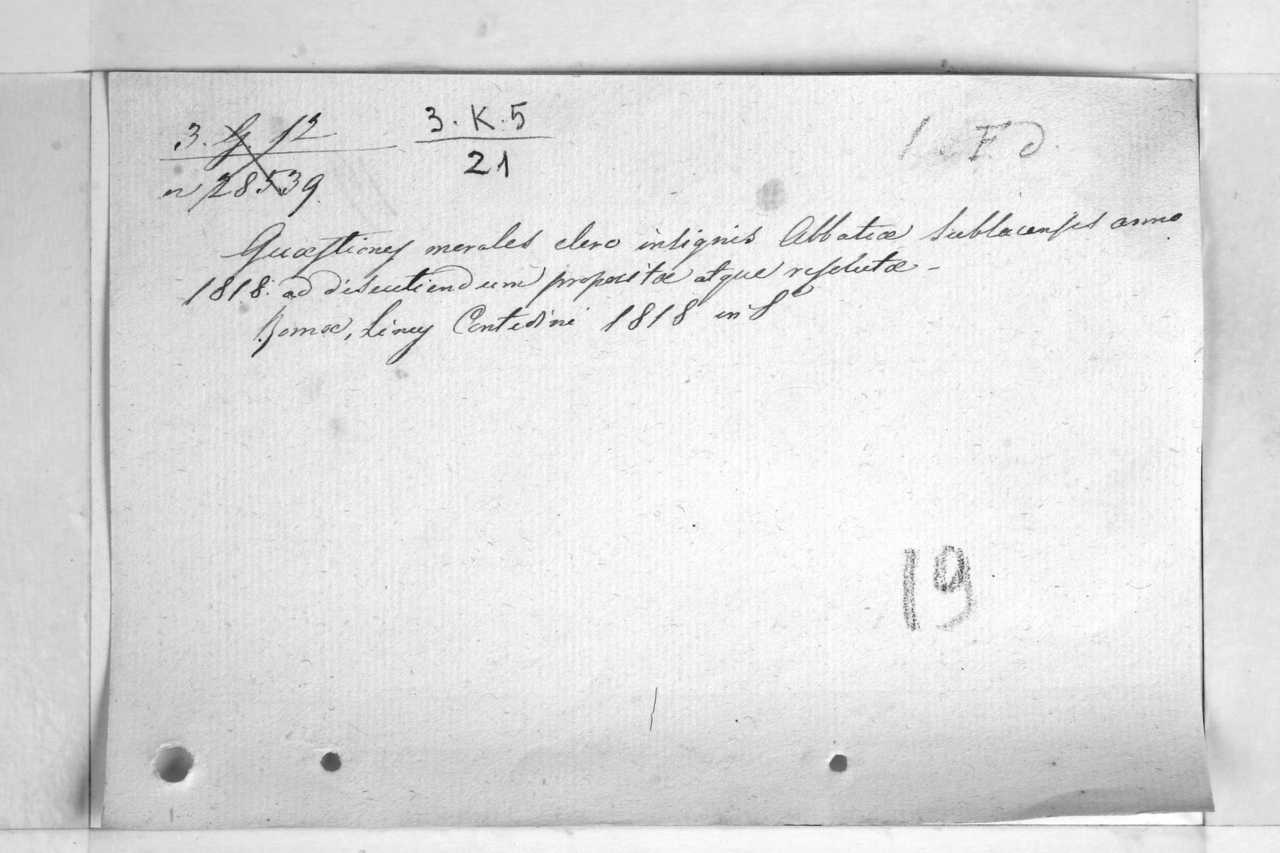 3. G. 12
n 28539
3. K. 5
21
F d.
Quæstiones morales clero insignis Abbatiæ Sublacensis anno
1818. ad discutiendum propositæ atque resolutæ -
Romæ, Linus Contedini 1818 in 8º
19